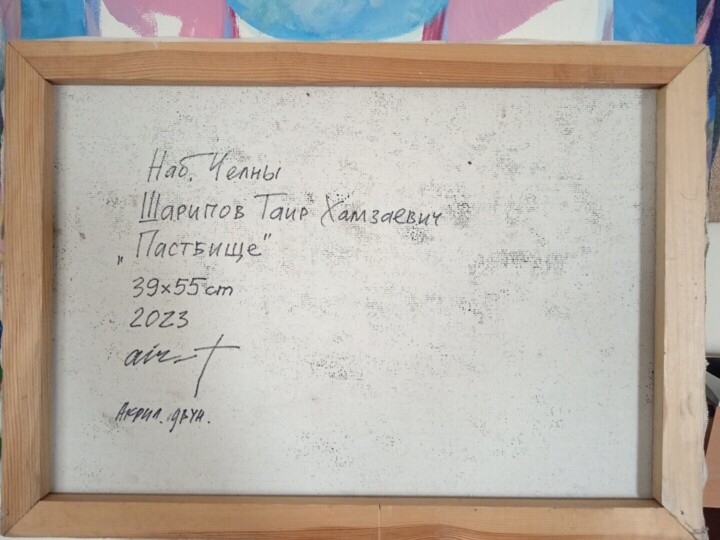 Наб. Челны
Шарипов Таир Хамзаевич
„Пастбище"
39x55cm
2023
Акрил.